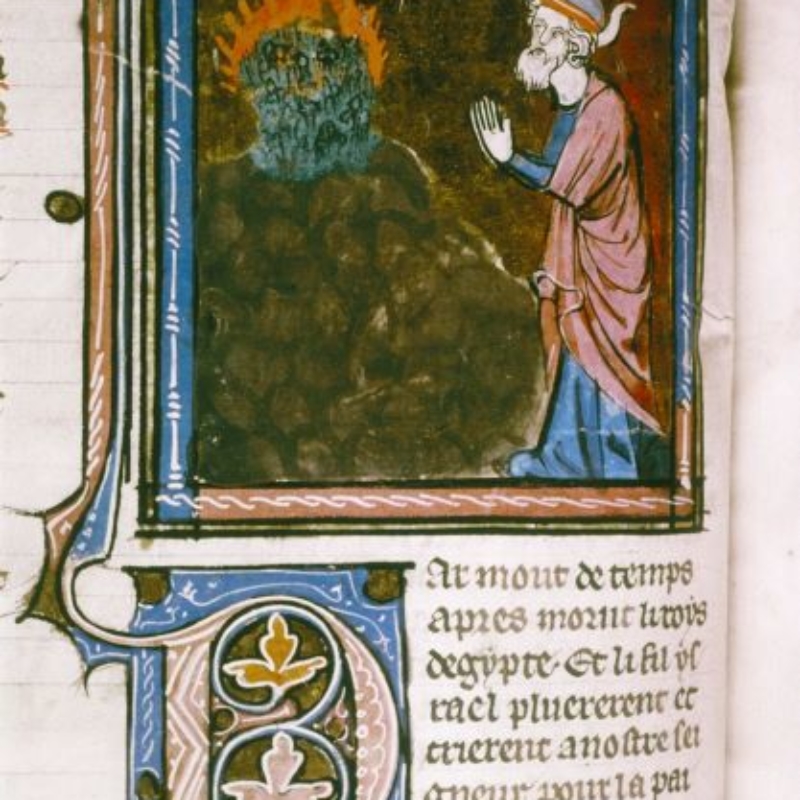 PAr mout de temps
apres morut li roys
degypte. Et li fil ys
rael pluererent et
crierent a nostre sei
gneur pour la pai